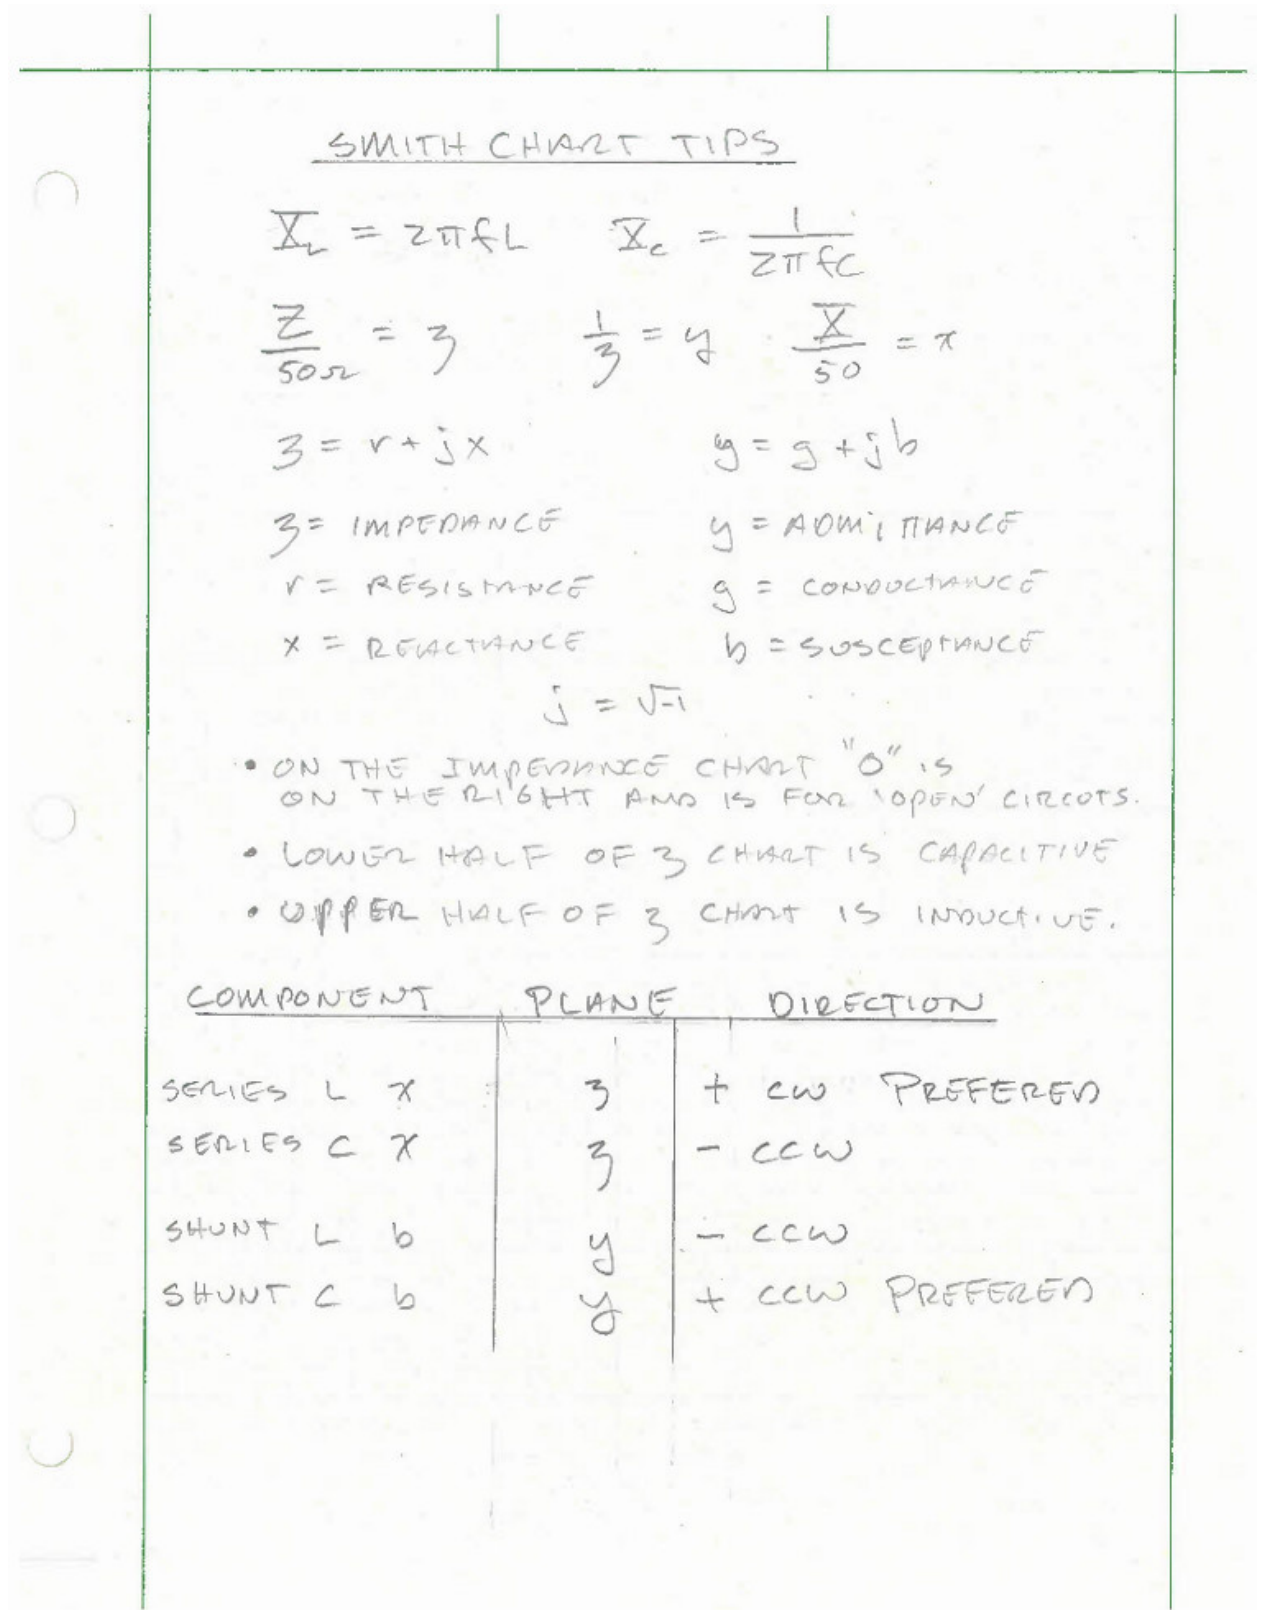 SMITH CHART TIPS
X_L = 2πfL    X_C = 1/(2πfC)
Z/50Ω = z    1/z = y    X/50 = x
z = r + jx    y = g + jb
z = IMPEDANCE    y = ADMITTANCE
r = RESISTANCE    g = CONDUCTANCE
x = REACTANCE    b = SUSCEPTANCE
j = √-1
• ON THE IMPEDANCE CHART "O" IS
ON THE RIGHT AND IS FOR 'OPEN' CIRCUTS.
• LOWER HALF OF z CHART IS CAPACITIVE
• UPPER HALF OF z CHART IS INDUCTIVE.
COMPONENT    PLANE    DIRECTION
SERIES L x    z    + CW PREFERED
SERIES C x    z    - CCW
SHUNT L b    y    - CCW
SHUNT C b    y    + CCW PREFERED